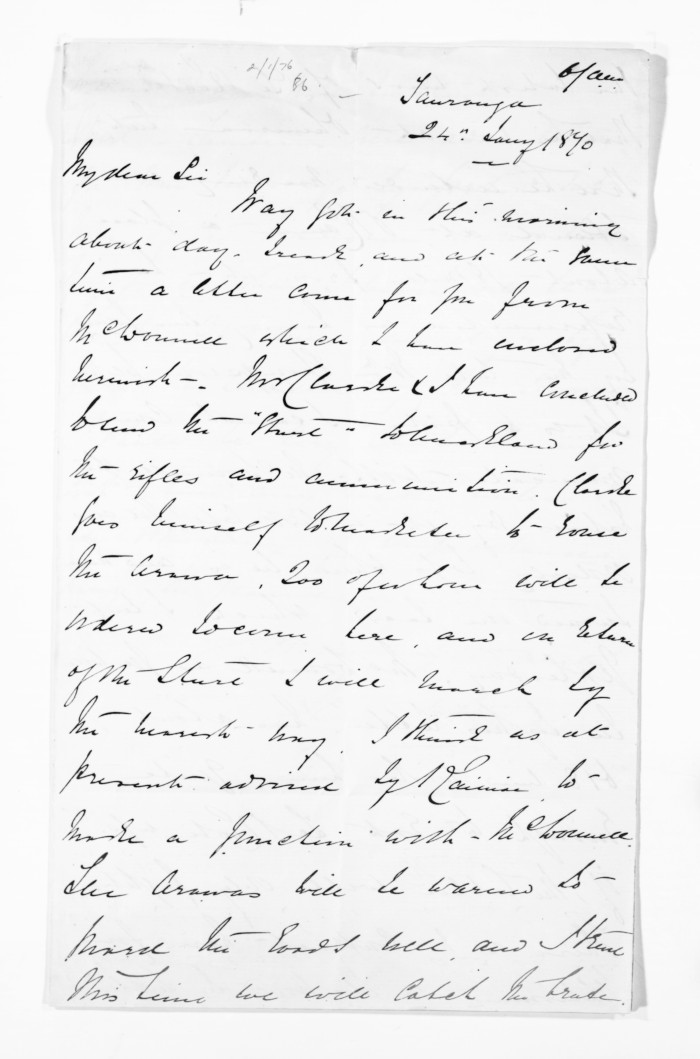 2/1/76
86
6/am
Tauranga
24th Jany 1870
My dear Sir
Way got in this morning
about day break, and at the same
time a letter came for you from
McDonnell which I have enclosed
herewith - Mr Clarke & I have concluded
to send the "Sturt" to Auckland for
the rifles and ammunition. Clarke
goes himself to Maketu to rouse
the Arawa, 200 of whom will be
ordered to come here, and on return
of the Sturt I will march by
the nearest way. I think as at
present advised by Kaimai to
make a junction with - McDonnell.
The Arawas will be warned to
guard the roads well, and I trust
this time we will catch the brute.